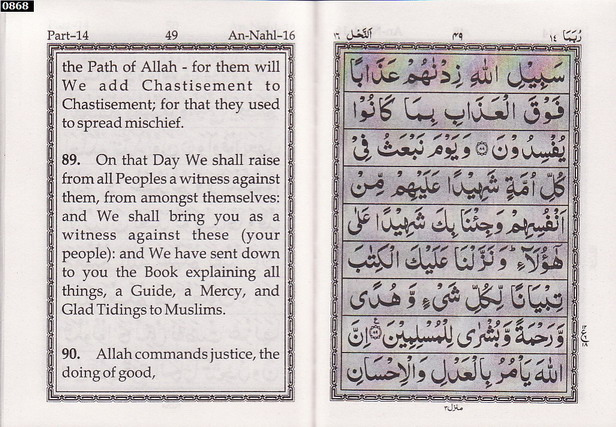 0868
Part–14 49 An-Nahl–16
the Path of Allah - for them will
We add Chastisement to
Chastisement; for that they used
to spread mischief.
89. On that Day We shall raise
from all Peoples a witness against
them, from amongst themselves:
and We shall bring you as a
witness against these (your
people): and We have sent down
to you the Book explaining all
things, a Guide, a Mercy, and
Glad Tidings to Muslims.
90. Allah commands justice, the
doing of good,
رُبَمَا ١٤ ٤٩ اَلنَّحْل ١٦
سَبِيْلِ اللّٰهِ زِدْنٰهُمْ عَذَابًا
فَوْقَ الْعَذَابِ بِمَا كَانُوْا
يُفْسِدُوْنَ ٨٨ وَيَوْمَ نَبْعَثُ فِيْ
كُلِّ اُمَّةٍ شَهِيْدًا عَلَيْهِمْ مِّنْ
اَنْفُسِهِمْ وَجِئْنَا بِكَ شَهِيْدًا عَلٰى
هٰٓؤُلَآءِ ؕ وَنَزَّلْنَا عَلَيْكَ الْكِتٰبَ
تِبْيَانًا لِّكُلِّ شَيْءٍ وَّهُدًى
وَّرَحْمَةً وَّبُشْرٰى لِلْمُسْلِمِيْنَ ٨٩ اِنَّ
اللّٰهَ يَاْمُرُ بِالْعَدْلِ وَالْاِحْسَانِ
منزل ٣